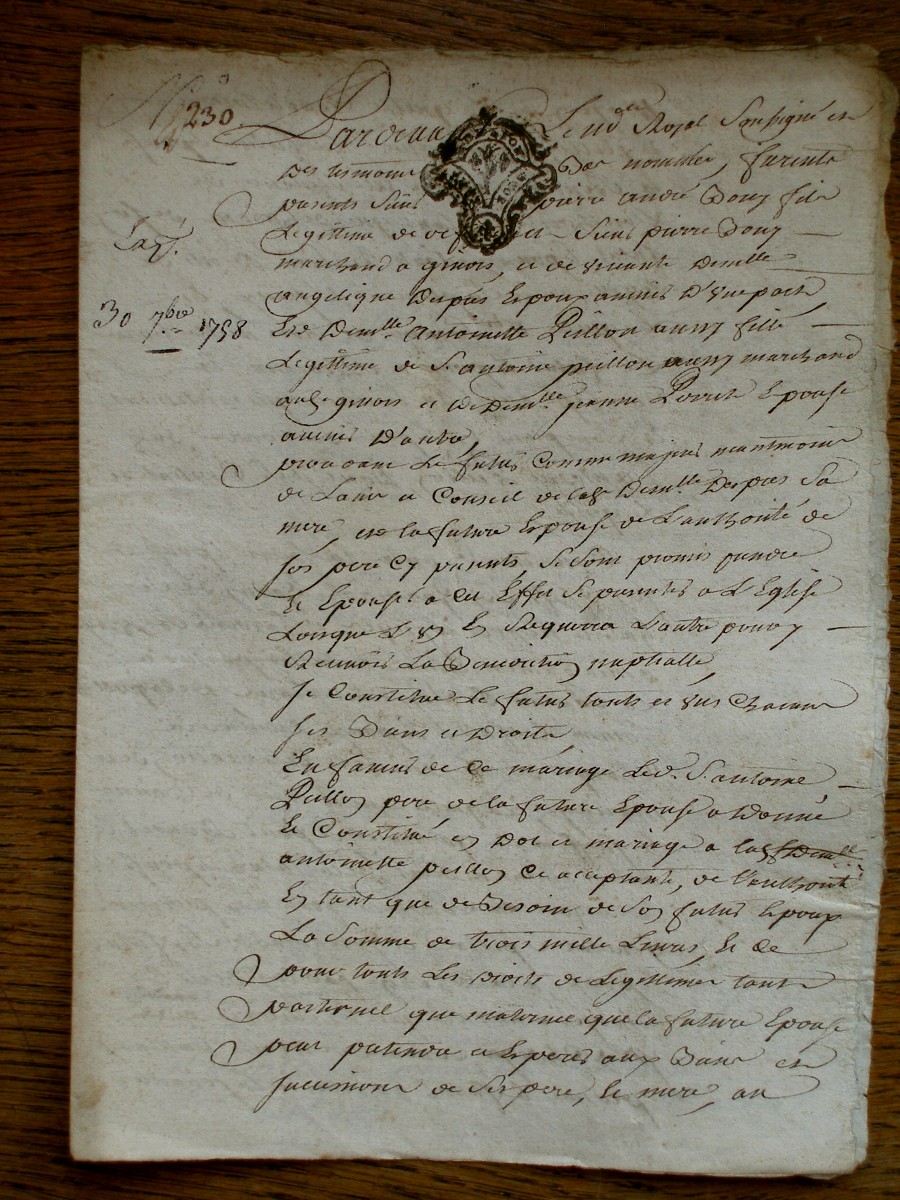 N° 230
Pardevant Le nd.re Royal Soussigné et
Des temoins Bas nommés, furents
presents Sieur pierre andré Douy fils
Legittime de deffunt Sieur pierre Douy
marchand a ginois, et de vivante Demlle
angelique Despies Epoux avenir D'Une part
30 7bre 1758
Et Demlle Antoinette Peillon aussy fille
Legittime de Sr. antoine peillon aussy marchand
aud. ginois et de Demlle jeanne Epouse
avenir D'autre
procedant Le futur Comme majeur neantmoins
de Lavis et Conseil de lade Demlle Despies Sa
mere, et la future Epouse de L'authorité de
ses pere Et parents, Se sont promis prendre
Et Epouser a Cet Effet Se presenter a L'Eglise
Lorsque L'Un En Requerra L'autre pour y
Recevoir La Benediction nuptialle
Se Constitue Le futur touts et Uns Chacuns
Ses Biens et Droits
En faveur de Ce mariage Led. Sr. antoine
Peillon pere de la future Epouse a Donné
Et Constitué en Dot et mariage a lad Demlle
antoinette peillon Ce acceptante, de L'authorité
En tant que de Besoin de Son futur Epoux
La Somme de trois mille Livres, Et Ce
pour touts Les Droits de Legittime tant
paternel que maternel que la future Epouse
peut pretendre et Esperer aux Biens et
successions de Ses pere, Et mere, au